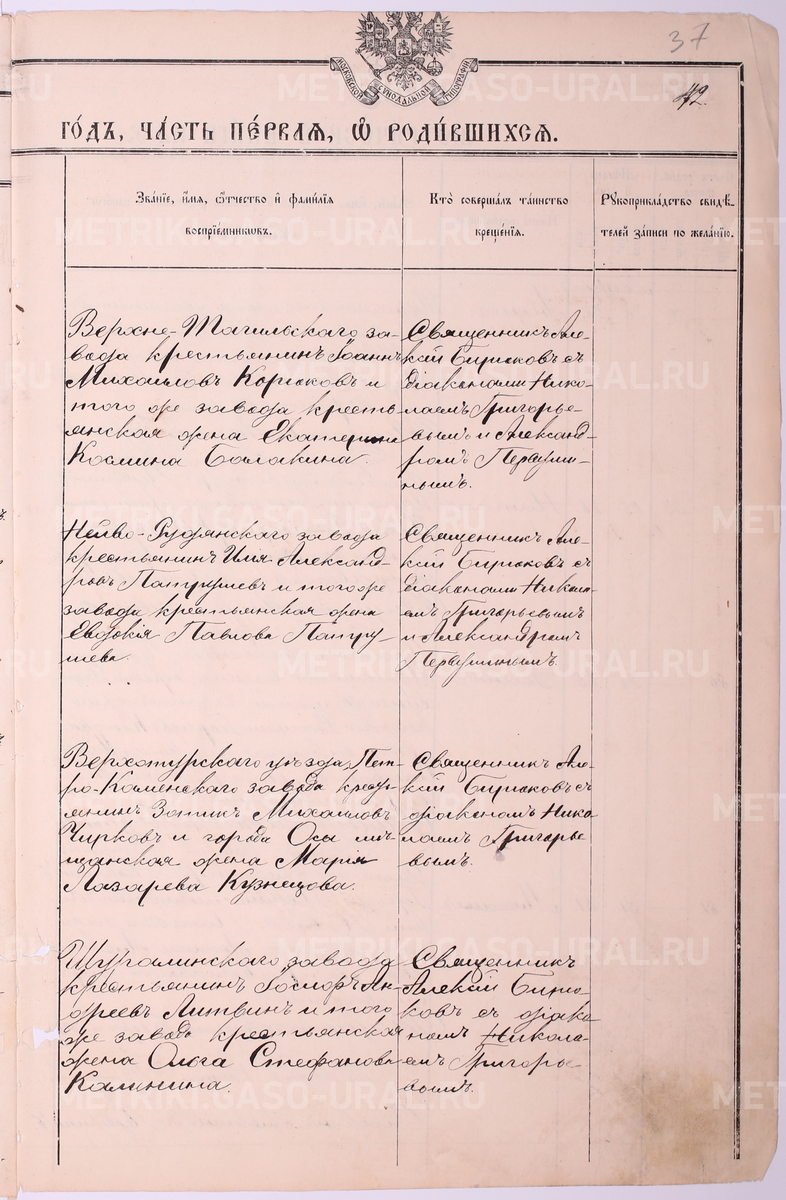 37
42.
МОСКОВСКОЙ СѴНОДАЛЬНОЙ ТИПОГРАФІИ
ГО́ДЪ, ЧА́СТЬ ПЕ́РВАЯ, Ѡ҆ РОДИ́ВШИХСЯ.
Зва́нїе, и҆́мя, ѻ҆́тчество и҆ фами́лїя
воспрїе́мникωвъ.
Кто̀ соверша́лъ та́инство
креще́нїя.
Рꙋкоприкла́дство свидѣ́-
телей за́писи по жела́нїю.
Верхне-Тагильскаго за-
вода крестьянинъ Іоаннъ
Михаиловъ Корюковъ и
того же завода кресть
янская жена Екатерина
Космина Балакина.
Священникъ Але-
ксій Бирюковъ съ
діаконами Нико-
лаемъ Григорье-
вымъ и Александ-
ромъ Первуши-
нымъ.
Нейво-Рудянскаго завода
крестьянинъ Илія Александ-
ровъ Патрушевъ и того же
завода крестьянская жена
Евдокія Павлова Патру-
шева.
Священникъ Але-
ксій Бирюковъ съ
діаконами Никола
емъ Григорьевымъ
и Александромъ
Первушинымъ.
Верхотурскаго уѣзда, Пет-
ро-Каменскаго завода кресть
янинъ Михаиловъ
Чирковъ и города Осы мѣ-
щанская жена Марія
Лазарева Кузнецова.
Священникъ Але-
ксій Бирюковъ съ
діакономъ Нико
лаемъ Григорье
вымъ.
Шуралинскаго завода
крестьянинъ Іосифъ Ан-
дреевъ Литвинъ и того
же завода крестьянская
жена Ольга Стефанова
Калинина.
Священникъ
Алексій Бирю-
ковъ съ діако
номъ Никола-
емъ Григорье-
вымъ.
METRIKI.GASO-URAL.RU